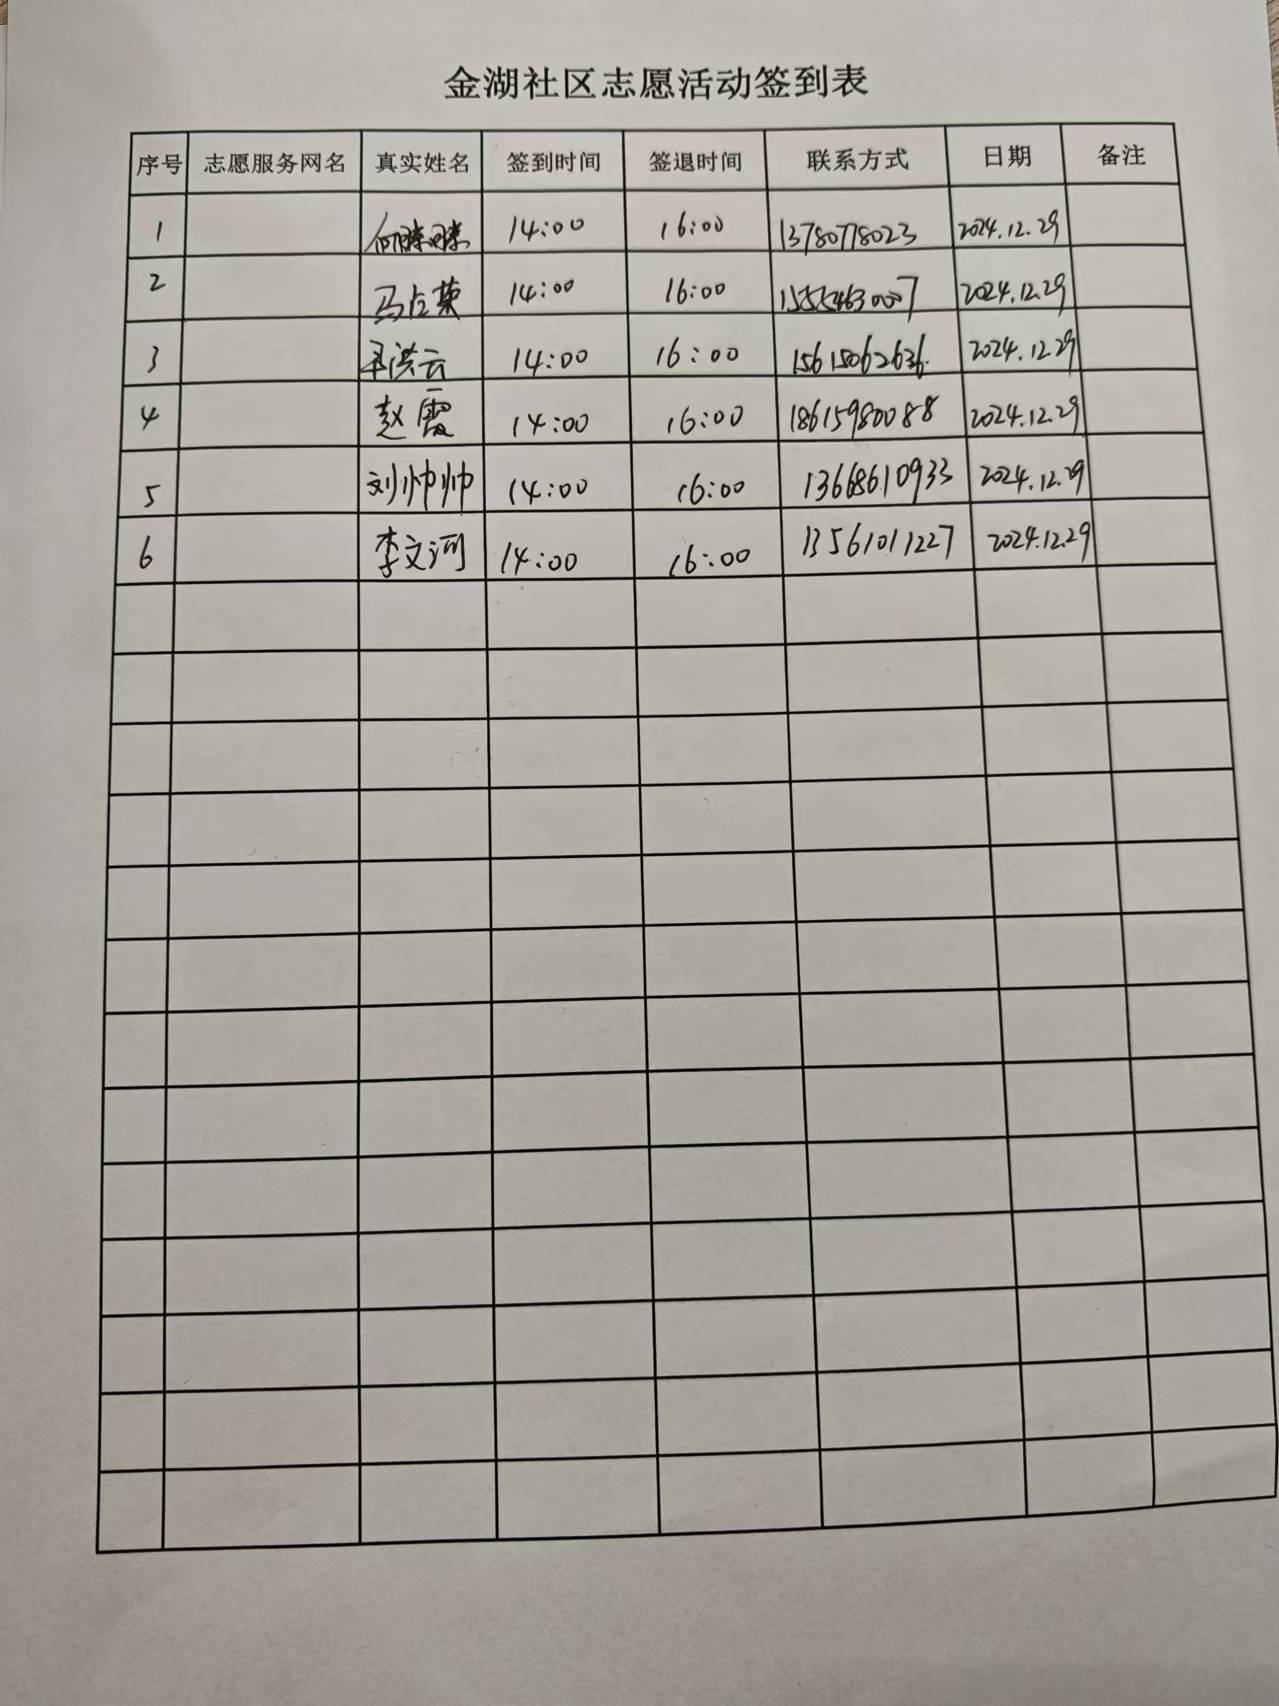 金湖社区志愿活动签到表
序号 志愿服务网名 真实姓名 签到时间 签退时间 联系方式 日期 备注
1 14:00 16:00 13780778023 2024.12.29
2 马占荣 14:00 16:00 15554630007 2024.12.29
3 洪云 14:00 16:00 15615062636 2024.12.29
4 赵霞 14:00 16:00 18615980088 2024.12.29
5 刘帅帅 14:00 16:00 13668610933 2024.12.29
6 李文河 14:00 16:00 13561011227 2024.12.29